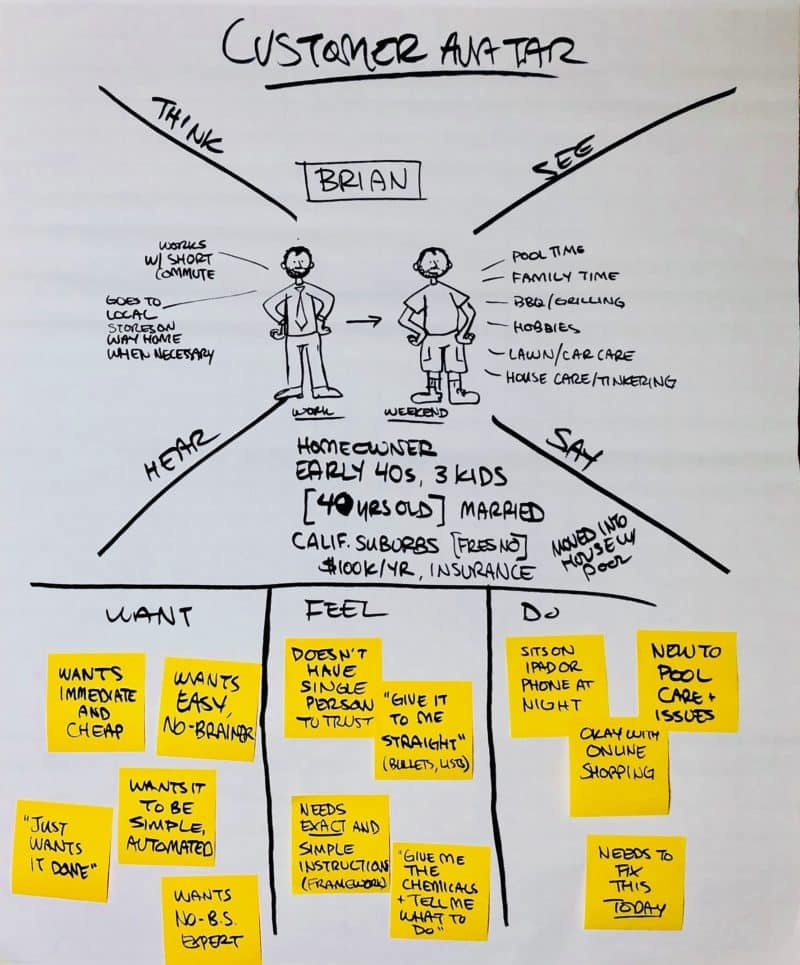 CUSTOMER AVATAR
THINK
SEE
BRIAN
WORKS
W/ SHORT
COMMUTE
GOES TO
LOCAL
STORES ON
WAY HOME
WHEN NECESSARY
POOL TIME
FAMILY TIME
BBQ/GRILLING
HOBBIES
LAWN/CAR CARE
HOUSE CARE/TINKERING
WORK
WEEKEND
HEAR
SAY
HOMEOWNER
EARLY 40s, 3 KIDS
[40 YRS OLD] MARRIED
CALIF. SUBURBS [FRESNO]
$100K/YR, INSURANCE
MOVED INTO
HOUSE W/
POOL
WANT
WANTS
IMMEDIATE
AND
CHEAP
WANTS
EASY,
NO-BRAINER
WANTS IT
TO BE
SIMPLE,
AUTOMATED
"JUST
WANTS
IT DONE"
WANTS
NO-B.S.
EXPERT
FEEL
DOESN'T
HAVE
SINGLE
PERSON
TO TRUST
"GIVE IT
TO ME
STRAIGHT"
(BULLETS, LISTS)
NEEDS
EXACT AND
SIMPLE
INSTRUCTION
(FRAMEWORK)
"GIVE ME
THE
CHEMICALS
+ TELL ME
WHAT TO
DO"
DO
SITS ON
IPAD OR
PHONE AT
NIGHT
NEW TO
POOL
CARE +
ISSUES
OKAY WITH
ONLINE
SHOPPING
NEEDS TO
FIX
THIS
TODAY